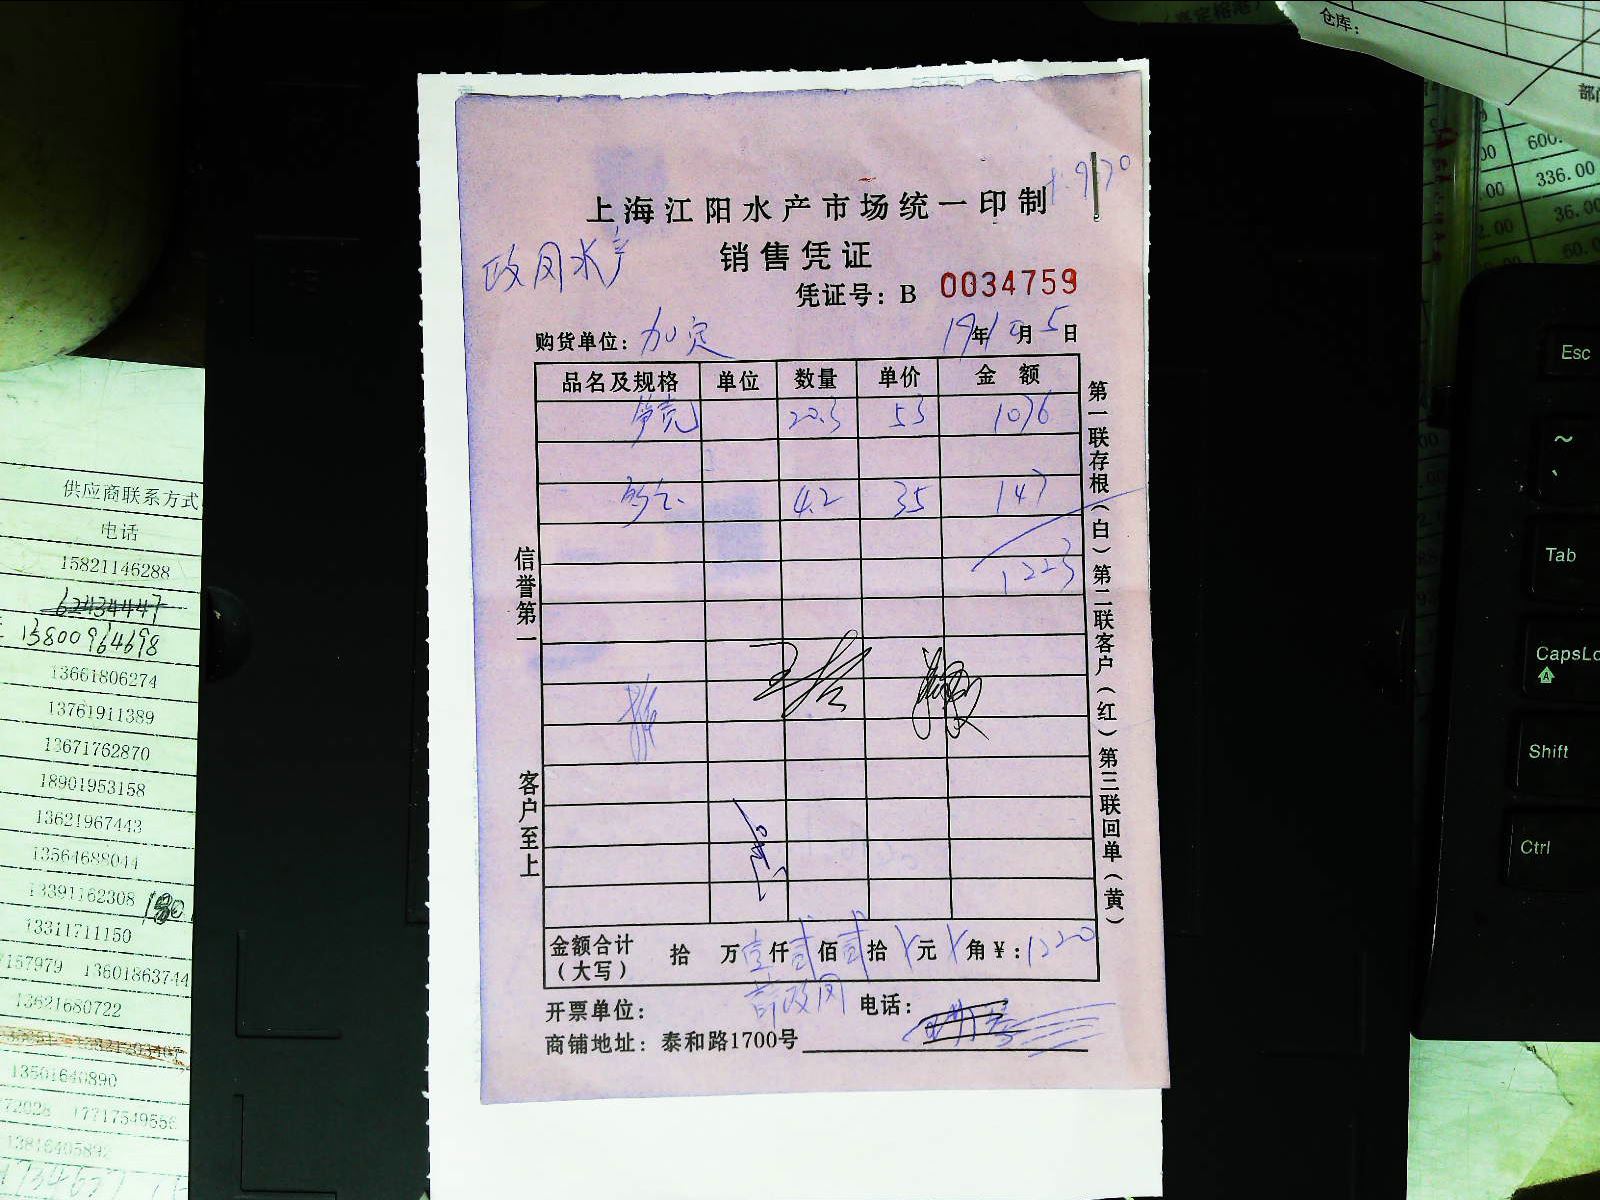 仓库：
部门
600.
336.00
36.00
60.0
上海江阳水产市场统一印制
政风水产
销售凭证
凭证号：B 0034759
购货单位：加定 19年12月5日
品名及规格 单位 数量 单价 金额
笋壳 20.3 53 1076
4.2 35 147
1223
信誉第一
客户至上
第一联存根（白）第二联客户（红）第三联回单（黄）
金额合计（大写） 拾 万壹仟贰佰贰拾 元 角￥：1220
开票单位： 政风 电话：
商铺地址：泰和路1700号
供应商联系方式
电话
15821146288
62434447
13800964698
13661806274
13761911389
13671762870
18901953158
13621967443
13564688044
13391162308 180
13311711150
7157979 13601863744
13621680722
13501640890
72028 17717549556
Esc
Tab
CapsLo
Shift
Ctrl